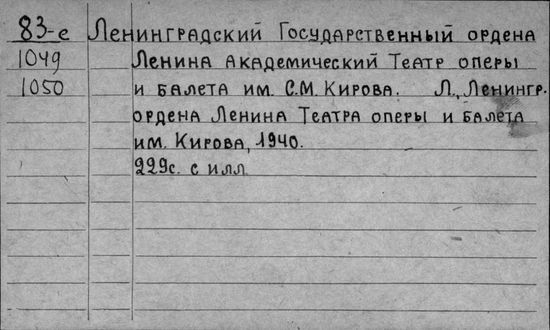 83-е Ленинградский Государственный ордена
1049 Ленина Академический Театр оперы
1050 и балета им. С.М. Кирова. Л., Ленингр.
ордена Ленина Театра оперы и балета
им. Кирова, 1940.
229с. с илл